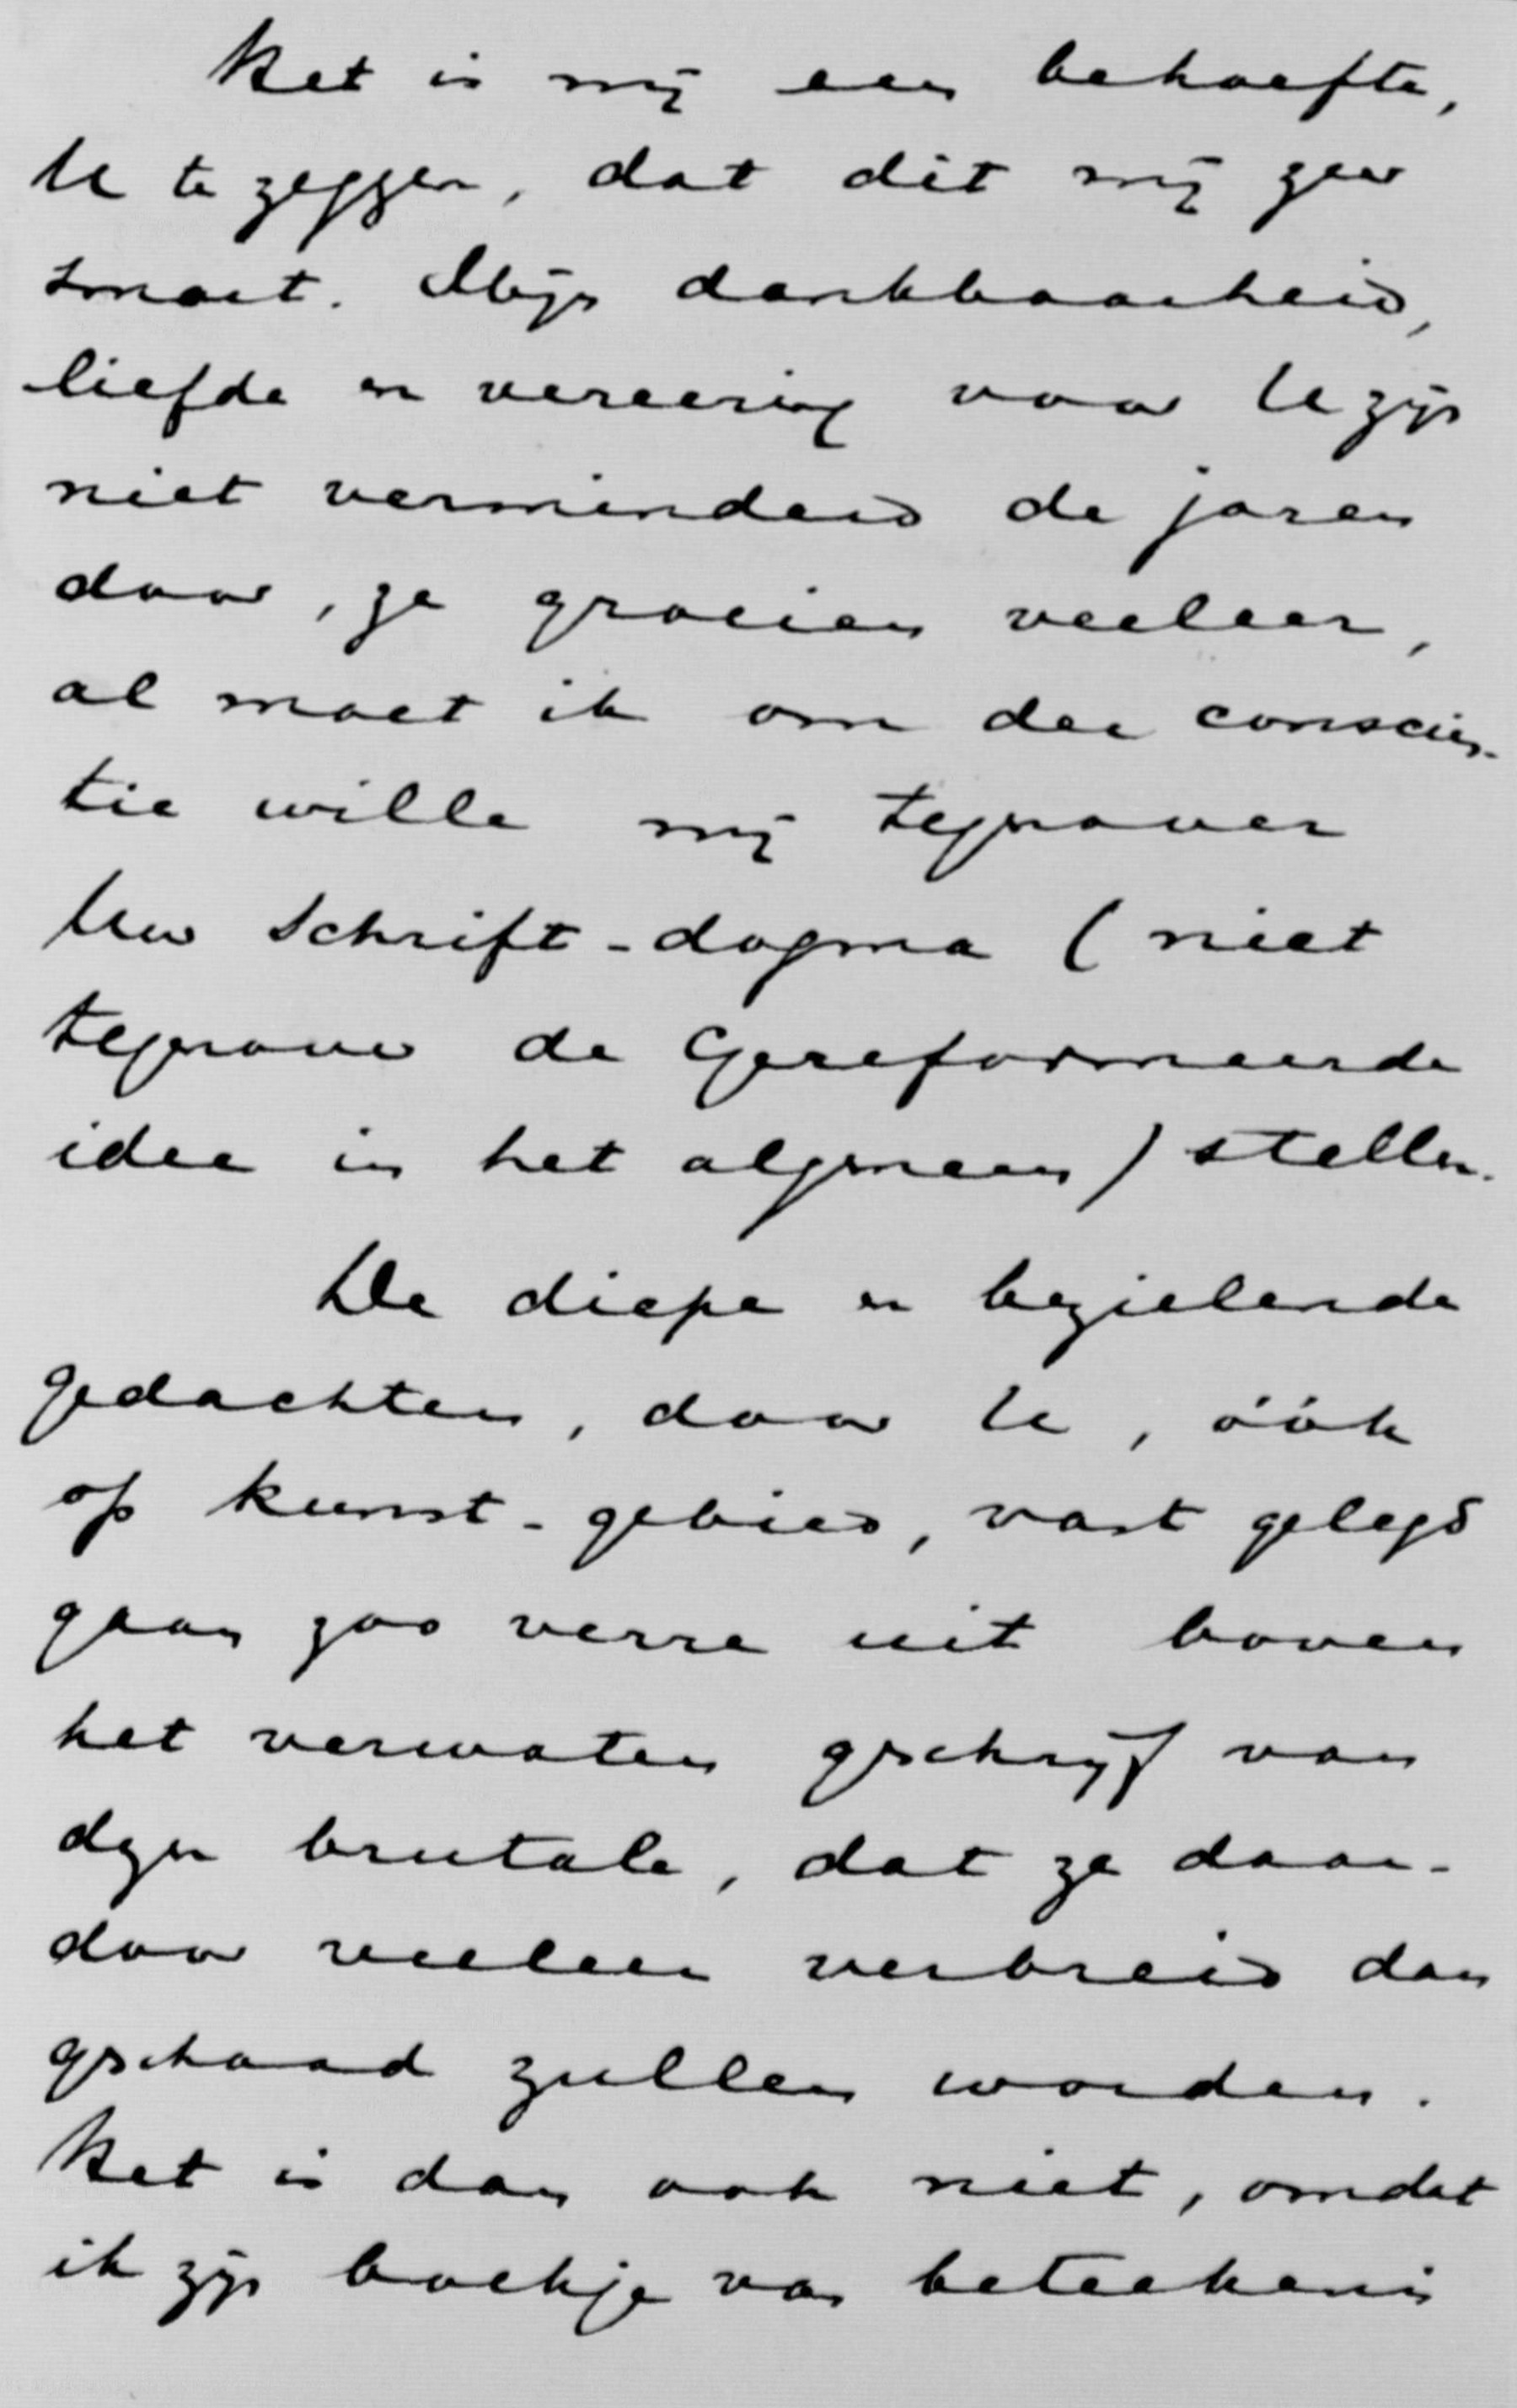 Het is mij een behoefte,
U te zeggen, dat dit mij zeer
smart. Mijn dankbaarheid,
liefde en vereering voor U zijn
niet verminderd de jaren
door, ze groeien veeleer,
al moet ik om der conscien-
tie wille mij tegenover
Uw Schrift-dogma (niet
tegenover de Gereformeerde
idee in het algemeen) stellen.
De diepe en bezielende
gedachten, door U, óók
op kunst-gebied, vast gelegd
gaan zoo verre uit boven
het verwaten geschrijf van
dezen brutale, dat ze daar-
door veeleer verbreid dan
geschaad zullen worden.
Het is dan ook niet, omdat
ik zijn boekje van beteekenis